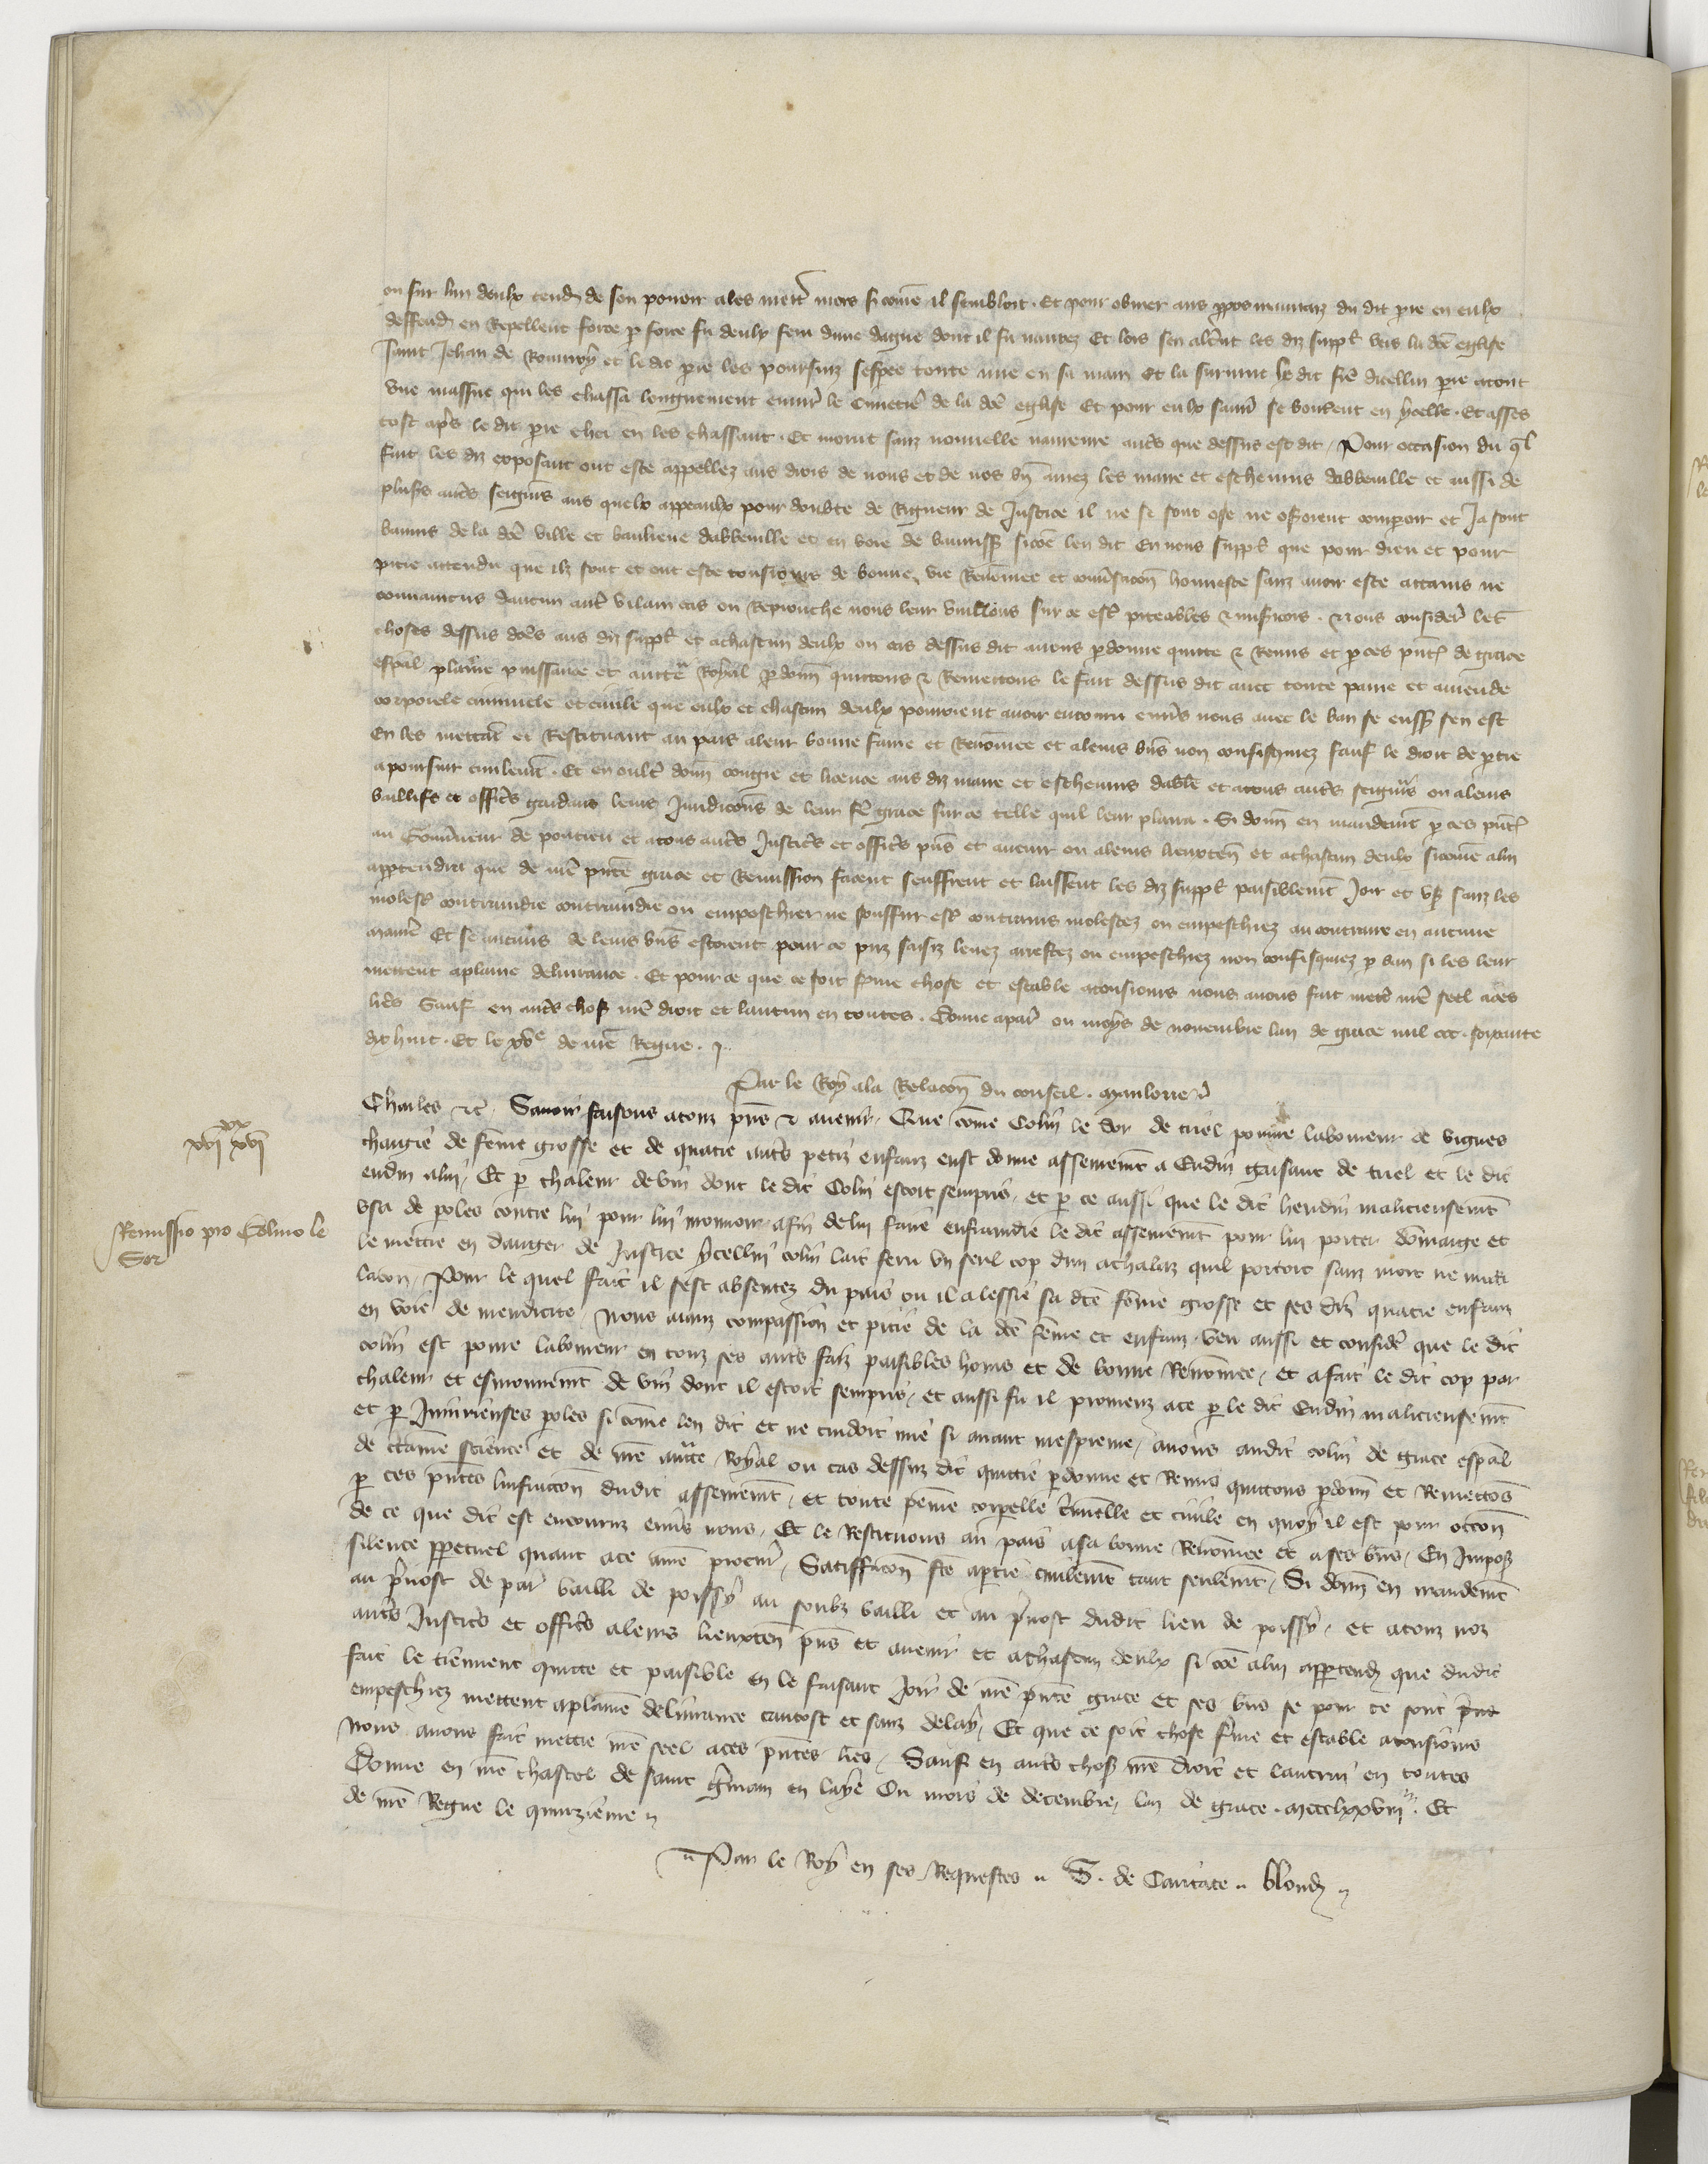 ou sur lun deulx tendẽ de son povoir a les mettr̃ mors si com̃e il sembloit. Et pour obvier aus ppos du dit pie en eulx
deffendr̃ en Repellent force p force fu deulx feru dune dague dont il fu navrez Et lors sen alerent les diz suppl̃ vers la dicẽ eglise
saint Jehan de Rouvroy et le dit pie les poursuiz lespee toute nue en sa main Et la survint le dit frẽ dicellui pie atout
une massue qui les chassa longuement envirõ le cimetier̃ de la dcẽ eglise Et pour eulx sauver se bouterent en ycelle. Et asses
tost ap̃s le dit pie chei en les chassant. Et morut sanz nouvelle navreure aut̃s que dessus est dit, Pour occasion du ql̃
fait les diz exposant ont este appellez aus drois de nous et de nos bñ amez les maire et eschevins dabbeville et aussi de
plus̃s aut̃s seigñs aus quelx appeaulx pour doubte de Rigueur de Justice il ne se sont ose ne oseroient comparoir et Ja sont
bannis de la dcẽ ville et banlieue dabbeville et en voie de banniss̃ sicõe len dit En nous suppl̃ que pour dieu et pour
pitie attendu que ilz sont et ont este tousiours de bonne vie Renõmee et conṽsacoñ honneste sanz avoir este attains ne
convaincus daucun aut̃ vilain cas ou Reprouche nous leur vuillons sur ce est̃ piteables & mis̃icors. Nous consider̃ les
choses dessus dcẽs aus diz suppl̃ et a chascun deulx ou cas dessus dit avons pdonne quitte & Remis et p ces pñt̃ de grace
esp̃al plaine puissance et auct̃e Royal pdonñ quittons & Remettons le fait dessus dit avec toute paine et amende
corporele criminele et civile que eulx et chascun deulx pourroient avoir encouru enṽs nous avec le ban se enss̃ sen est
En les mettãt et Restituant au pais a leur bonne fame et Renõmee et a leurs bñs non confisquiez sauf le droit de ptie
a poursuir civilemt̃. Et en oultr̃ donñ congie et licence aus diz maire et eschevins dabbẽ et a tous aut̃s seigñrs ou a leurs
baillifs et offic̃s gardans leurs Juridicoñs de leur fẽ grace sur ce telle quil leur plaira. Si donñ en mandemt̃ p ces pñt̃
au Gouṽneur de pontieu et a tous aut̃s Justic̃s et offic̃s pñs et avenir ou a leurs lieuxteñ et a chascun deulx sicom̃e a lui
appertendra que de nrẽ pñtẽ grace et Remission facent seuffrent et laissent les diz suppl̃ paisiblemt̃ Joir et us̃ sanz les
molest̃ contraindre contraindre ou empeschier ne souffrir est̃ contrains molestez ou empeschiez au contraire en aucune
manier̃ Et se aucuns de leurs bñs estoient pour ce prz saisiz levez arrestez ou empeschiez non confisquiez p ban si les leur
mettent a plaine delivrance. Et pour ce que ce soit ferme chose et estable a tousiours nous avons fait mettr̃ nrẽ seel a ces
lr̃es Sauf en aut̃s chos̃ nrẽ droit et lautrui en toutes. Donne a par̃ ou moys de novembre lan de grace mil ccc. soixante
dix huit. Et le xvᵉ de nrẽ Regne.
Par le Roy a la Relacoñ du conseil. Manlouer̃
Charles &c̃. Savoir faisons a touz pñs & avenir. Que com̃e Colin le Sor de triel povre laboureur de vignes
chargie de fem̃e grosse et de quatre aut̃s petiz enfanz eust donne assenremt̃ a Eudin Grisaut de triel et le dit
eudin a lui, Et p chaleur de vin dont le dit Colin estoit sempris, et p ce aussi que le dit heudin malicieusemt̃
usa de poles contre lui pour lui mouvoir afin de lui faire enfraindre le dit assenremt̃ pour lui porter dom̃aige et
le mettre en danger de Justice ycellui colin lait feru un seul cop dun achalaz quil portoit sanz mort ne mutilacon. Pour le quel fait il sest absentez du pais ou il a lessie sa dtẽ fem̃e grosse et ses diz quatre enfanz
en voie de mendicite, Nous aianz compassion et pitie de la dcẽ fem̃e et enfanz. veu aussi et consider̃ que le dit
colin est povre laboureur en touz ses aut̃s faiz paisibles homs et de bonne Renom̃ee, et a fait le dit cop par
chaleur et esmouvemt̃ de vin dont il estoit sempris, et aussi fu il promeuz a ce p le dit Eudin malicieusemt̃
et p Iniurieuses poles si com̃e len dit et ne cuidoit mie si avant mesprenre, avons audit colin de grace esp̃al
de ctainẽ science et de nrẽ auctẽ Royal ou cas dessuz dit quittie pdonne et Remis quittons pdonñ et Remettons
p ces pñtes linfraccoñ dudit assenremt̃, et toute peine corpelle c̃iminelle et civile en quoy il est pour occoñ
de ce que dit est encouruz enṽs nous, Et le Restituons au pais a sa bonne Renom̃ee et a ses bñs, En Impos̃
silence ppetuel quant a ce a nrẽ procur̃, Satisffacoñ fcẽ a ptie civilemt̃ tant seulemt̃, Si donñ en mandemt̃
au p̃vost de par̃ bailli de poissy au soubz bailli et au p̃vost dudit lieu de poissy, et a touz noz
aut̃s Justic̃s et offic̃s a leurs lieuxteñ pñs et avenir et a chascun deulx si cõe a lui appartendr̃ que dudit
fait le tiennent quitte et paisible en le faisant Joir de nrẽ pñtẽ grace et ses bñs se pour ce sont p̃ns
empeschiez mettent a plainẽ delivrance tantost et sanz delay, Et que ce soit chose fermẽ et estable a tousiours
nous avons fait mettre nrẽ seel a ces pñtes lr̃es, Sauf en aut̃s chos̃ nrẽ droit et lautrui en toutes
Donne en nrẽ chastel de saint g̃main en laye Ou mois de decembre, lan de grace. mccclxxviii. Et
de nrẽ Regne le quinzieme
Par le Roy en ses Requestes. G. de Caritate. blond̃
xviˣˣ xvi
Remissio pro Colino le
Sor